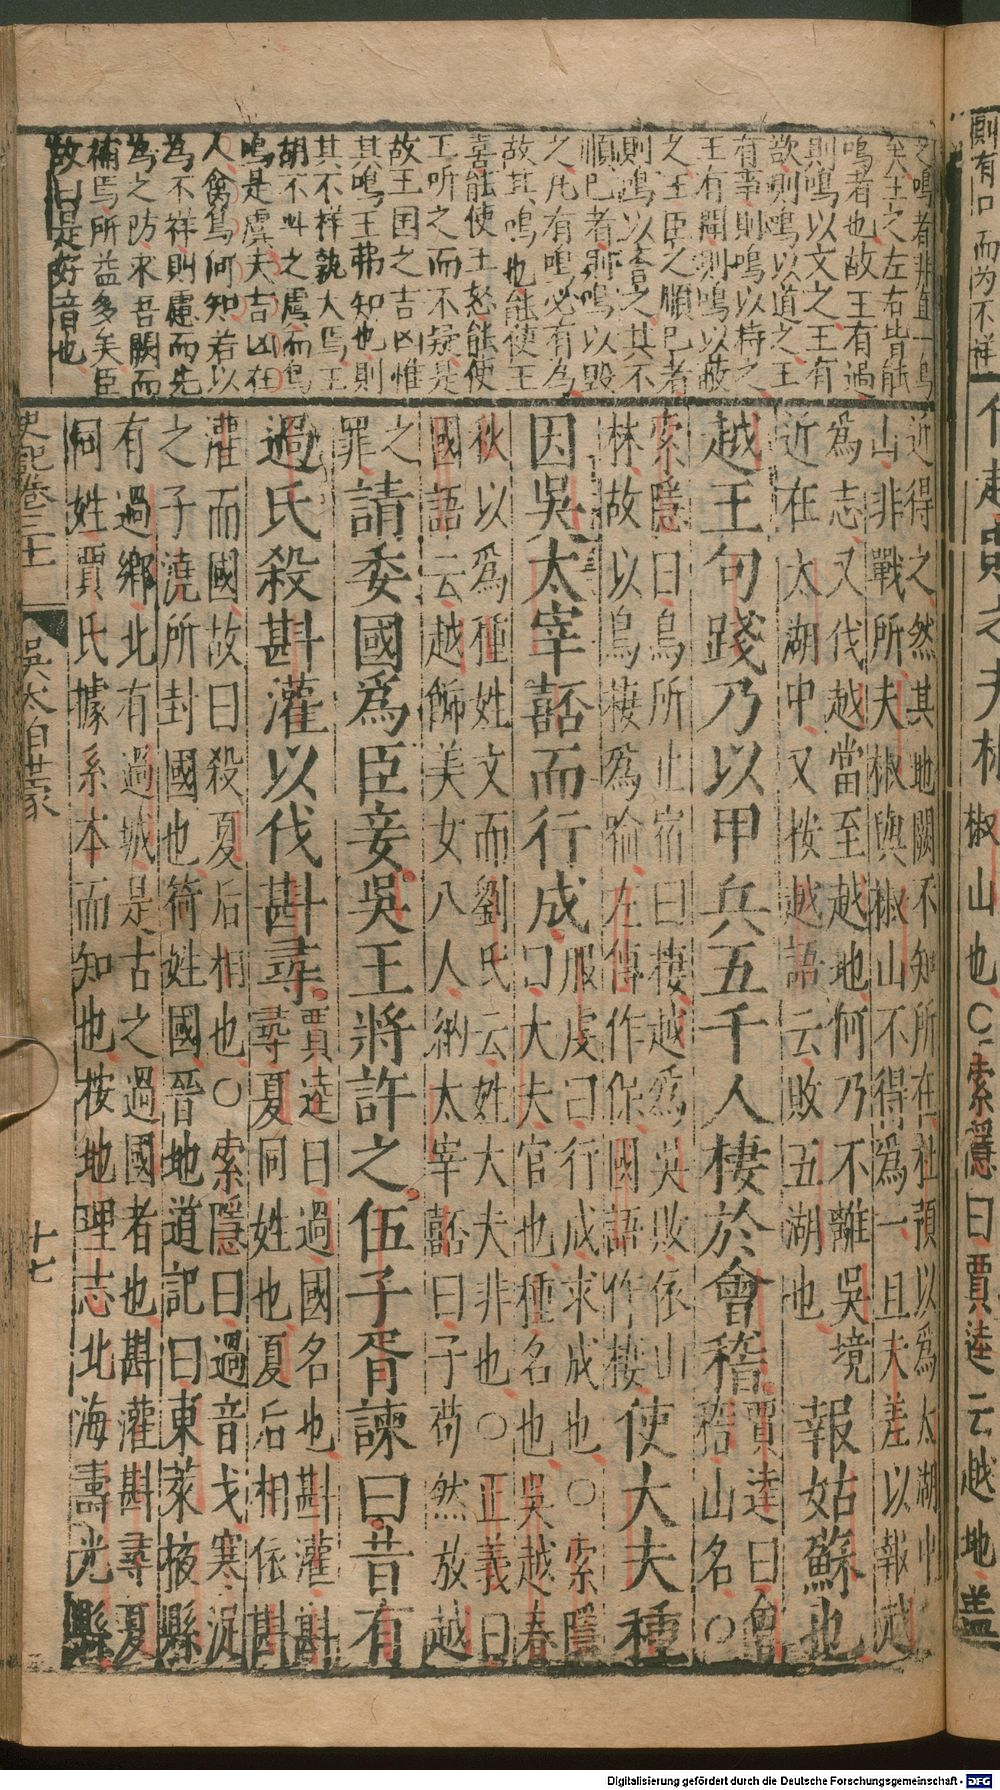 之鳴者非直一鳥
矣王之左右皆能
鳴者也故王有過
則鳴以文之王有
欲則鳴以道之王
有事則鳴以持之
王有聞則鳴以蔽
之王臣之順己者
則鳴以譽之其不
順己者則鳴以毀
之凡有鳴必有為
故其鳴也能使王
喜能使王怒能使
王听之而不疑是
故王国之吉凶惟
其鳴王弗知也則
其不祥孰大焉王
胡不叫之慮而鳥
鳴是虞夫吉凶在
人禽鳥何知若以
為不祥則慮而先
為之防求吾闕而
補焉所益多矣臣
故曰是好音也
近得之然其地闕不知所在杜預以爲太湖中
山非戰所夫椒與椒山不得爲一且夫差以報越
爲志又伐越當至越地何乃不離吳境
近在太湖中又按越語云敗五湖也
報姑蘇也
越王句踐乃以甲兵五千人棲於會稽
賈逵曰會
稽山名○
索隱曰鳥所止宿曰棲越爲吳敗依山
林故以鳥棲爲喻左傳作保國語作棲
使大夫種
因吳太宰嚭而行成
服虔曰行成求成也○索隱
曰大夫官也種名也吳越春
秋以爲種姓文而劉氏云姓大夫非也○正義曰
國語云越飾美女八人納太宰嚭曰子苟然放越
之
罪
請委國爲臣妾吳王將許之伍子胥諫曰昔有
過氏殺斟灌以伐斟尋
賈逵曰過國名也斟灌斟
尋夏同姓也夏后相依斟
灌而國故曰殺夏后相也○索隱曰過音戈寒浞
之子澆所封國也猗姓國晉地道記曰東萊掖縣
有過鄉北有過城是古之過國者也斟灌斟尋夏
同姓賈氏據系本而知也按地理志北海壽光縣
史記卷三十一
吳太伯世家
十七
則有口而內不祥
椒山也○索隱曰賈逵云越地蓋
Digitalisierung gefördert durch die Deutsche Forschungsgemeinschaft - DFG